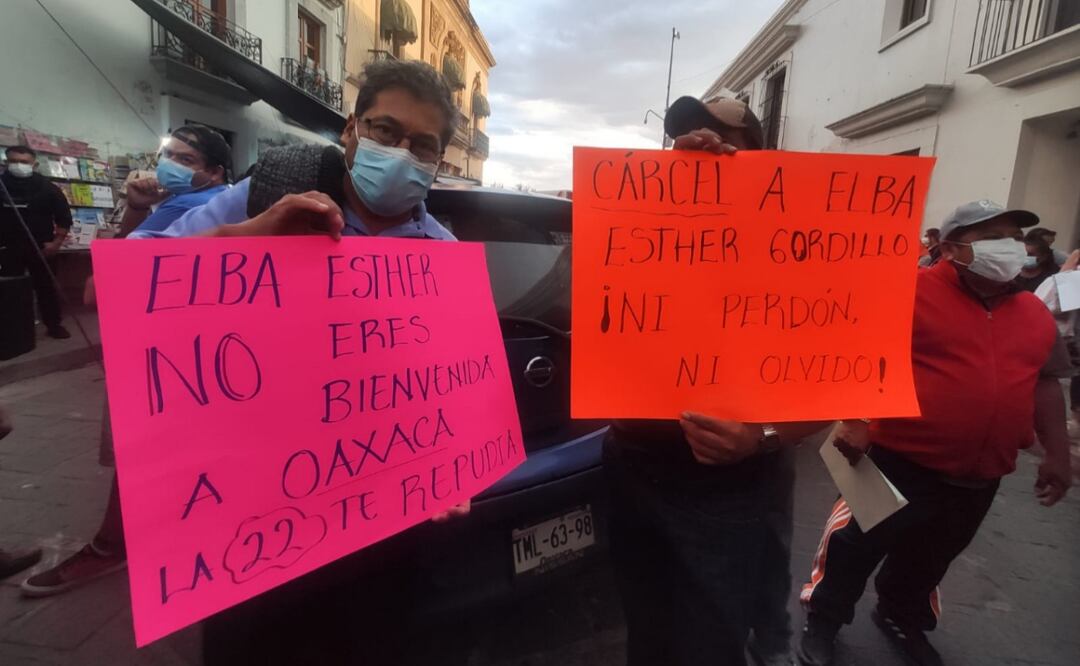 ELBA ESTHER
NO ERES
BIENVENIDA
A OAXACA
LA 22 TE REPUDIA
CÁRCEL A ELBA
ESTHER GORDILLO
¡NI PERDÓN,
NI OLVIDO!
TML-63-98